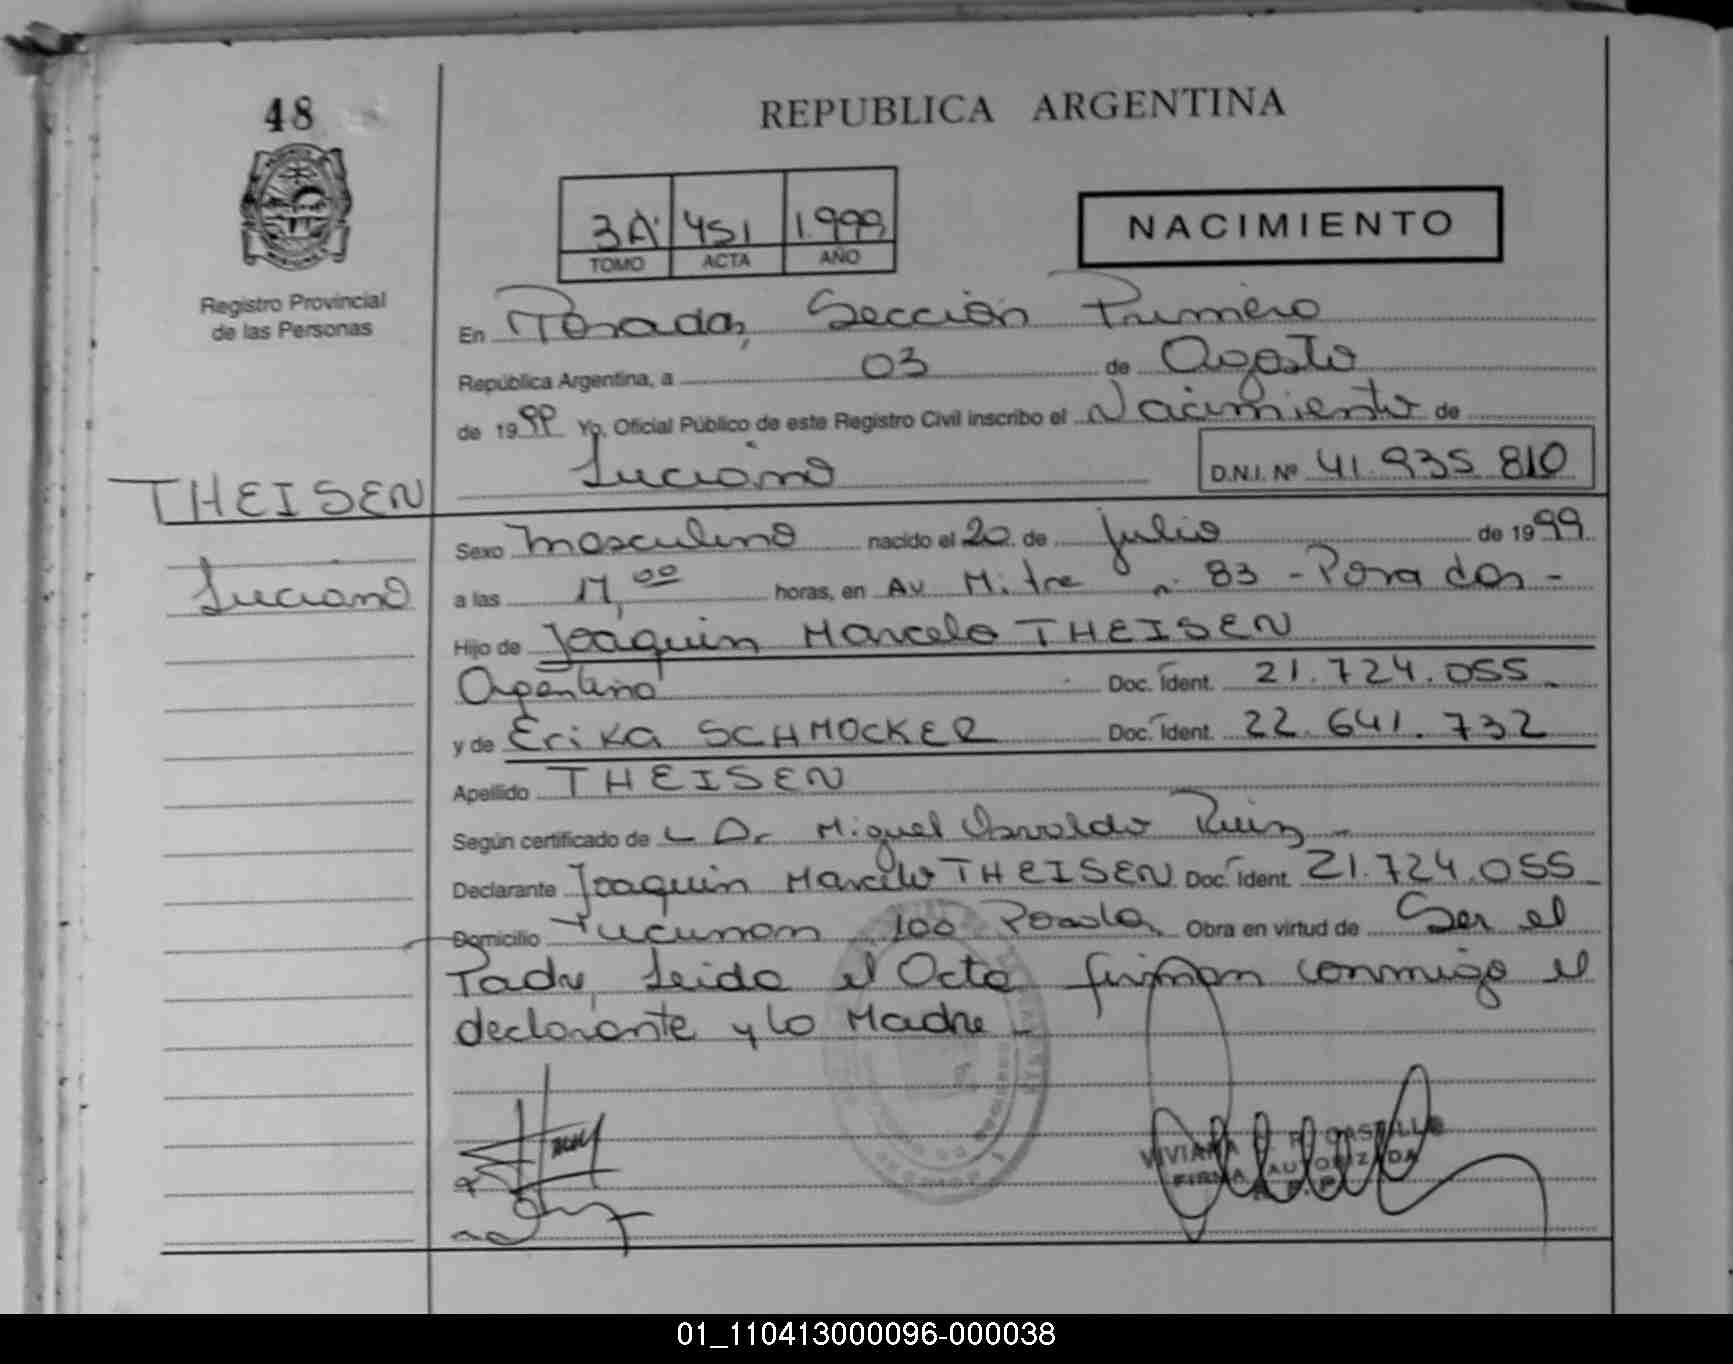 48
REPUBLICA ARGENTINA
3A 451 1.999
TOMO ACTA AÑO
NACIMIENTO
Registro Provincial
de las Personas
En Posadas, Sección Primera
República Argentina, a 03 de Agosto
de 1999 Yo, Oficial Público de este Registro Civil inscribo el Nacimiento de
Luciano D.N.I. Nº 41.935 810
THEISEN
Luciano
Sexo masculino nacido el 20 de julio de 1999
a las horas, en Av Mitre nº 83 - Posadas -
Hijo de Joaquin Marcelo THEISEN
Argentino Doc. Ident. 21.724.055
y de Erika SCHMOCKER Doc. Ident. 22.641.732
Apellido THEISEN
Según certificado de Dr Miguel Osvaldo Ruiz -
Declarante Joaquin Marcelo THEISEN Doc. Ident. 21.724.055
Domicilio Tucuman 100 Posadas Obra en virtud de Ser el
Padre, Leida el Acta firman conmigo el
declarante y la Madre -
VIVIANA CASTILLO
FIRMA AUTORIZADA
01_110413000096-000038